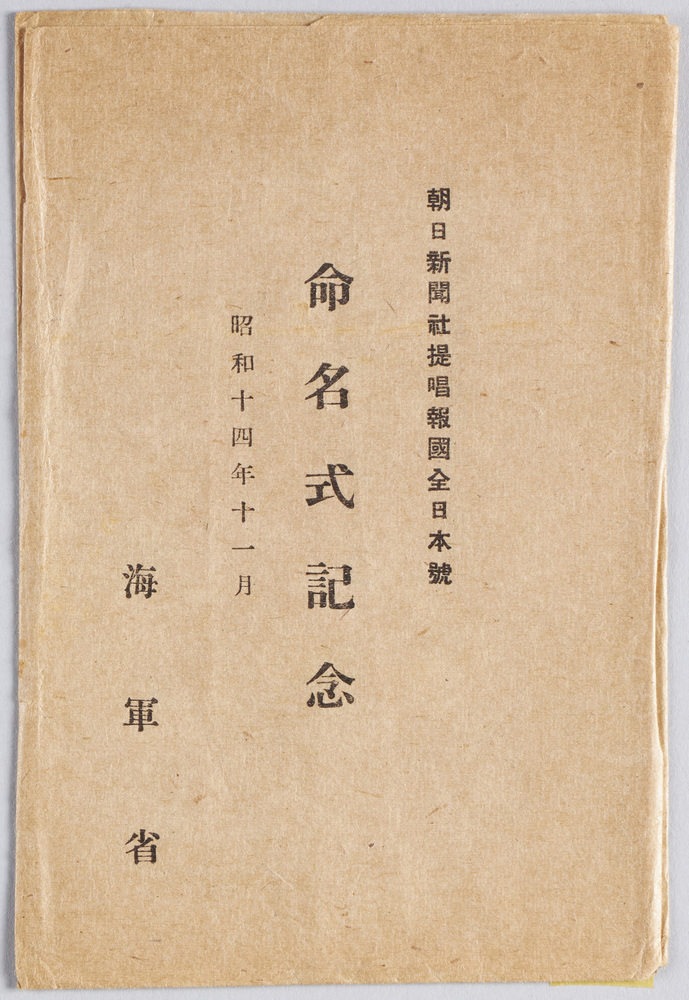 朝日新聞社提唱報國全日本號
命名式記念
昭和十四年十一月
海軍省